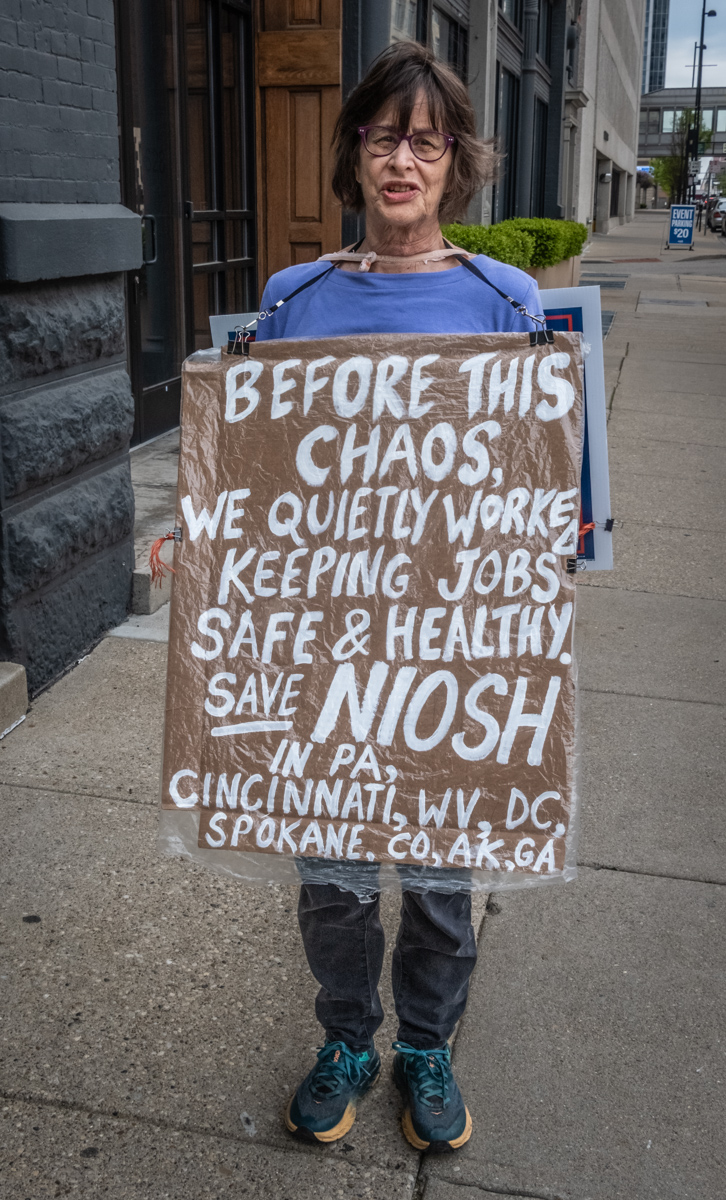 EVENT
PARKING
$20
BEFORE THIS
CHAOS,
WE QUIETLY WORKED
KEEPING JOBS
SAFE & HEALTHY.
SAVE NIOSH
IN PA,
CINCINNATI, WV, DC,
SPOKANE, CO, AK, GA